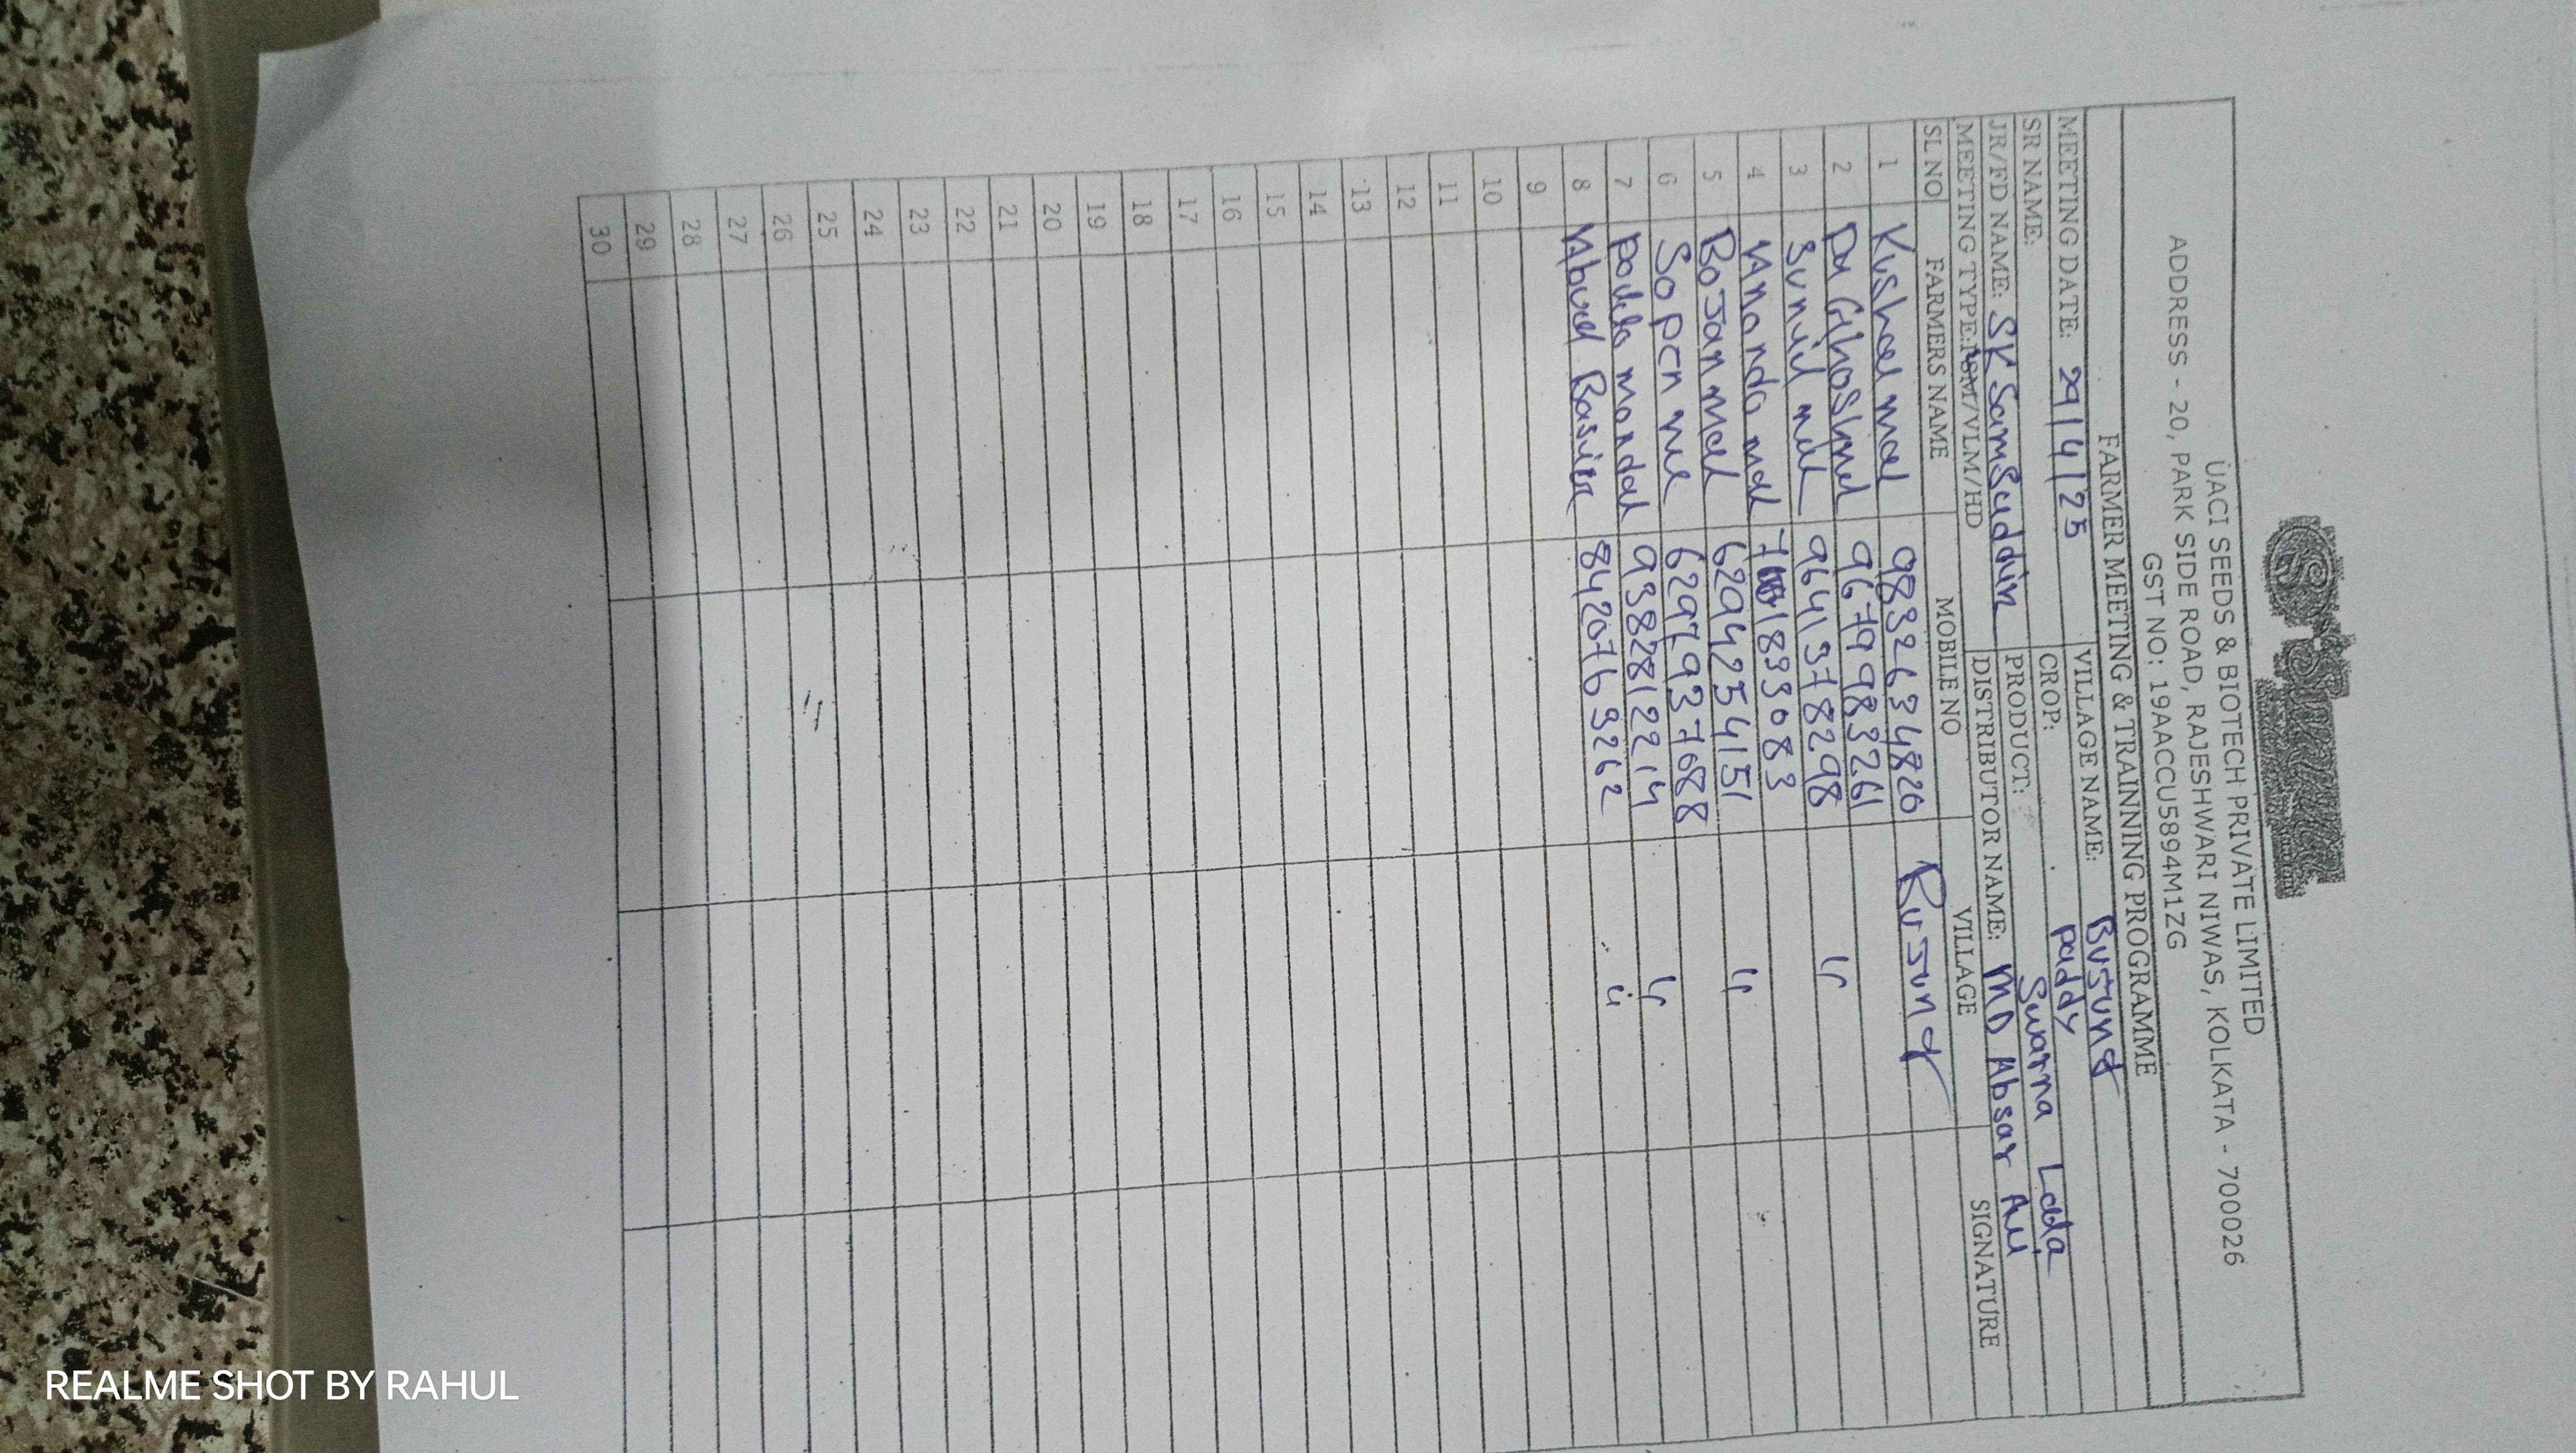 UACI SEEDS & BIOTECH PRIVATE LIMITED
ADDRESS - 20, PARK SIDE ROAD, RAJESHWARI NIWAS, KOLKATA - 700026
GST NO: 19AACCU5894M1ZG
FARMER MEETING & TRAINNING PROGRAMME
MEETING DATE: 29/4/25 VILLAGE NAME: Busund
SR NAME: CROP: Paddy
JR/FD NAME: SK Samsuddin PRODUCT: Swarna Lata
MEETING TYPE: NSM/VLM/HD DISTRIBUTOR NAME: MD Absar Ali
SL NO FARMERS NAME MOBILE NO VILLAGE SIGNATURE
1 Kushal mal 9832634820 Busund
2 9679983261
3 Sunil mal 9641378298 "
4 Ananda mal 7 1833083
5 Bojan mal 6294254151 "
6 Sopen 6297937688
7 mondal 9382812214 "
8 Abul Basir 8420769262 "
9
10
11
12
13
14
15
16
17
18
19
20
21
22
23
24
25
26
27
28
29
30
REALME SHOT BY RAHUL